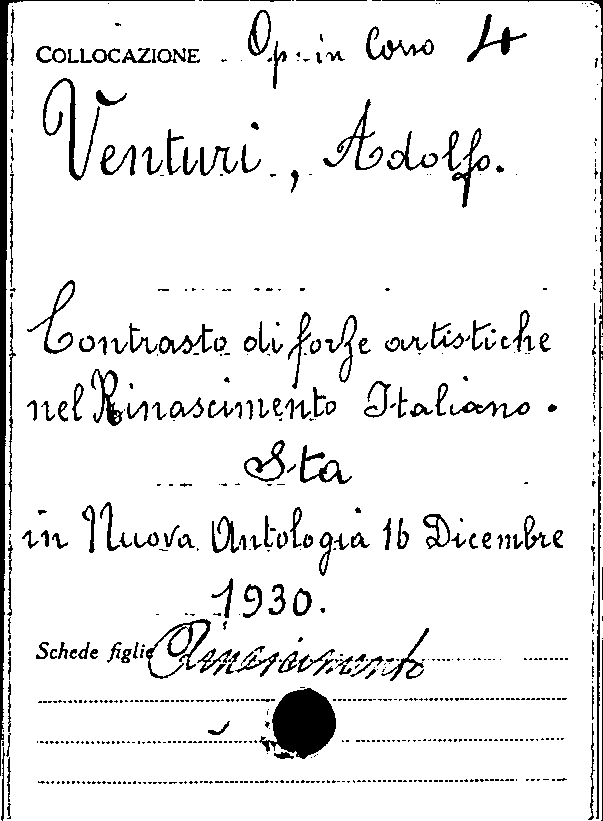 COLLOCAZIONE Op. in Corso 4
Venturi, Adolfo.
Contrasto di forze artistiche
nel Rinascimento Italiano.
Sta
in Nuova Antologia 16 Dicembre
1930.
Schede figlie Rinascimento